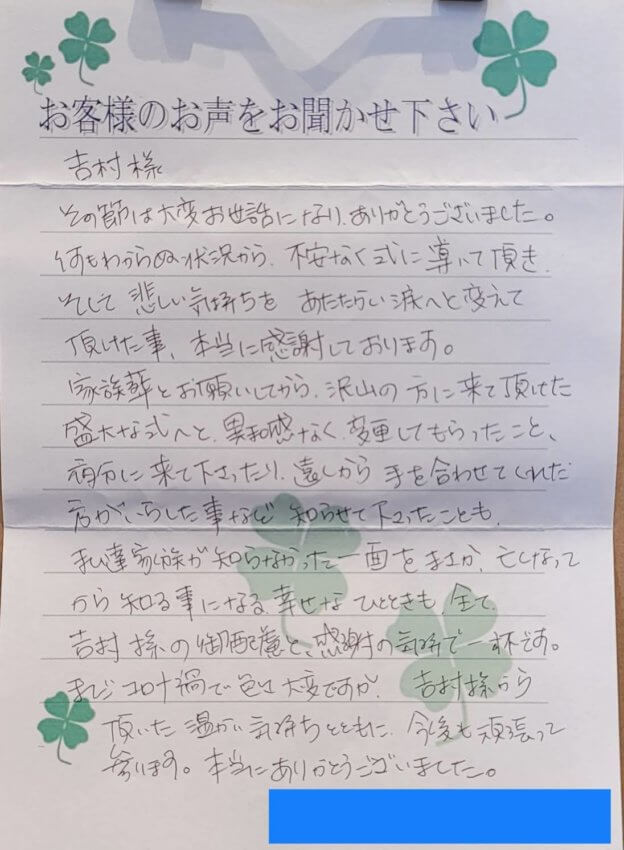 お客様のお声をお聞かせ下さい
吉村様
その節は大変お世話になり、ありがとうございました。
何もわからぬ状況から、不安なく式に導いて頂き、
そして悲しい気持ちを あたたかい涙へと変えて
頂けた事、本当に感謝しております。
家族葬とお願いしてから、沢山の方に来て頂けた
盛大な式へと、異和感なく、変更してもらったこと、
に来て下さったり、遠くから手を合わせてくれた
方がいらした事など 知らせて下さったことも、
私達家族が知らなかった一面をまさか、亡くなって
から知る事になる、幸せなひとときも、全て、
吉村様の御配慮と、感謝の気持で一杯です。
まだコロナ禍で色々大変ですが、 吉村様から
頂いた温かい気持ちとともに、今後も頑張って
参ります。本当にありがとうございました。